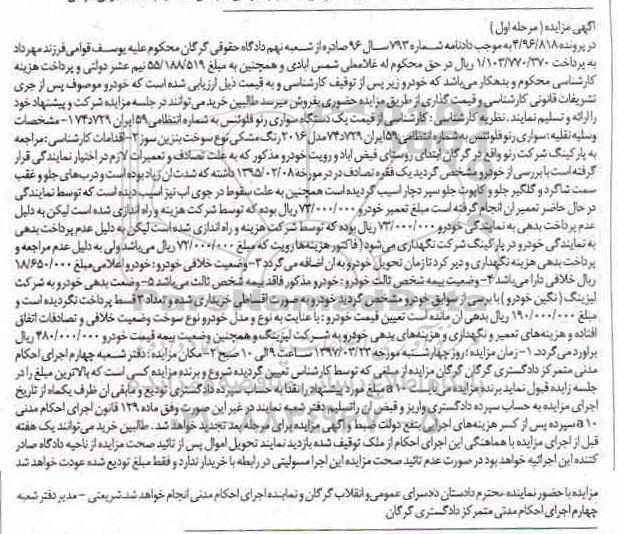 آگهی مزایده ( مرحله اول )
در پرونده ۴/۹۶/۸۱۸ به موجب دادنامه شماره ۷۹۳ سال ۹۶ صادره از شعبه نهم دادگاه حقوقی گرگان محکوم علیه یوسف قوامی فرزند مهرداد
به پرداخت ۱/۱۰۳/۷۷۰/۳۷۰ ریال در حق محکوم له غلامعلی شمس ابادی و همچنین به مبلغ ۵۵/۱۸۸/۵۱۹ نیم عشر دولتی و پرداخت هزینه
کارشناسی محکوم و بدهکار می‌باشد که خودرو زیر پس از توقیف کارشناسی و به قیمت ذیل ارزیابی شده است که خودرو موصوف پس از جری
تشریفات قانونی کارشناسی و قیمت گذاری از طریق مزایده حضوری بفروش میرسد طالبین خرید می‌توانند در جلسه مزایده شرکت و پیشنهاد خود
را ارائه و تسلیم نمایند . نظریه کارشناسی : کارشناسی از قیمت یک دستگاه سواری رنو فلوئنس به شماره انتظامی ۵۹ ایران ۷۲۹د۷۴ ۱- مشخصات
وسیله نقلیه : سواری رنو فلوئنس به شماره انتظامی ۵۹ ایران ۷۲۹د۷۴ مدل ۲۰۱۶ رنگ مشکی نوع سوخت بنزین سوز ۲- اقدامات کارشناسی : مراجعه
به پارکینگ شرکت رنو واقع در گرگان ابتدای روستای فیض اباد و رویت خودرو مذکور که به علت تصادف و تعمیرات لازم در اختیار نمایندگی قرار
گرفته است با بررسی از خودرو مشخص گردید یک فقره تصادف در مورخه ۱۳۹۵/۰۲/۰۸ داشته که شدت ان زیاد بوده است و درب‌های جلو و عقب
سمت شاگرد و گلگیر جلو و کاپوت جلو سپر دچار اسیب گردیده است همچنین به علت سقوط در جوی اب نیز اسیب دیده است که توسط نمایندگی
در حال حاضر تعمیر ان انجام گرفته است مبلغ تعمیر خودرو ۷۳/۰۰۰/۰۰۰ ریال بوده که توسط شرکت هزینه و راه اندازی شده است لیکن به دلیل
عدم پرداخت بدهی به نمایندگی خودرو ۷۳/۰۰۰/۰۰۰ ریال بوده که توسط شرکت هزینه و راه اندازی شده است لیکن به دلیل عدم پرداخت بدهی
به نمایندگی خودرو در پارکینگ شرکت نگهداری می‌شود ( فاکتور هزینه‌ها رویت که مبلغ ۷۳/۰۰۰/۰۰۰ ریال می‌باشد ولی به دلیل عدم مراجعه و
پرداخت بدهی هزینه نگهداری و دیر کرد تا زمان تحویل خودرو به ان اضافه می‌گردد ۳- وضعیت خلافی خودرو : خودرو اعلامی مبلغ ۱۸/۶۵۰/۰۰۰
ریال خلافی دارا می‌باشد ۴- وضعیت بیمه شخص ثالث خودرو : خودرو مذکور فاقد بیمه شخص ثالث می‌باشد ۵- وضعیت بدهی خودرو به شرکت
لیزینگ ( نگین خودرو ) با بررسی از سوابق خودرو مشخص گردید خودرو به صورت اقساطی خریداری شده و تعداد ۲ قسط پرداخت نگردیده است و
مبلغ ۱۹۰/۰۰۰/۰۰۰ ریال بدهی ان مانده است تعیین قیمت خودرو : با عنایت به نوع و مدل خودرو نوع سوخت وضعیت خلافی و تصادفات اتفاق
افتاده و هزینه‌های تعمیر و نگهداری و هزینه‌های بدهی خودرو به شرکت لیزینگ و همچنین وضعیت بیمه قیمت خودرو ۴۸۰/۰۰۰/۰۰۰ ریال
برآورد می‌گردد. ۱- زمان مزایده : روز چهارشنبه مورخه ۱۳۹۷/۰۳/۲۳ ساعت ۹ الی ۱۰ صبح ۲- مکان مزایده : دفتر شعبه چهارم اجرای احکام
مدنی متمرکز دادگستری گرگان گرگان مزایده از مبلغی که توسط کارشناس تعیین گردیده شروع و برنده مزایده کسی است که بالاترین مبلغ را در
جلسه زایده قبول نماید برنده مزایده می‌بایست ۱۰a مبلغ مورد پیشنهاد را نقدا به حساب سپرده دادگستری تودیع و مابقی ان ظرف یکماه از تاریخ
اجرای مزایده به حساب سپرده دادگستری واریز و قبض ان را تسلیم دفتر شعبه نمایند در غیر این صورت وفق ماده ۱۲۹ قانون اجرای احکام مدنی
۱۰a سپرده پس از کسر هزینه‌های اجرای بنفع دولت ضبط و آگهی مزایده برای مرحله بعد تجدید خواهد شد . طالبین خرید می‌توانند یک هفته
قبل از اجرای مزایده با هماهنگی این اجرای احکام از ملک توقیف شده بازدید نمایند تحویل اموال پس از تائید صحت مزایده از ناحیه دادگاه صادر
کننده این اجرائیه خواهد بود در صورت عدم تائید صحت مزایده این اجرا مسولیتی در رابطه با خریدار ندارد و فقط مبلغ تودیع شده عودت خواهد شد
مزایده با حضور نماینده محترم دادستان دادسرای عمومی و انقلاب گرگان و نماینده اجرای احکام مدنی انجام خواهد شد.شریعتی – مدیر دفتر شعبه
چهارم اجرای احکام مدنی متمرکز دادگستری گرگان